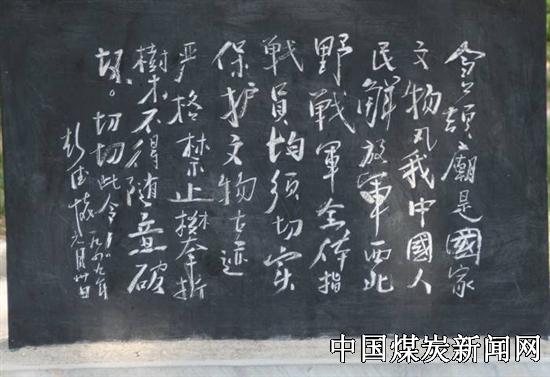 仓頡廟是國家
文物凡我中國人
民解放軍西北
野戰軍全体指
戰員均須切实
保护文物古迹
严格禁止攀折
樹木不得随意破
坏。切切此令。
彭德懷
一九四九年
六月
中国煤炭新闻网